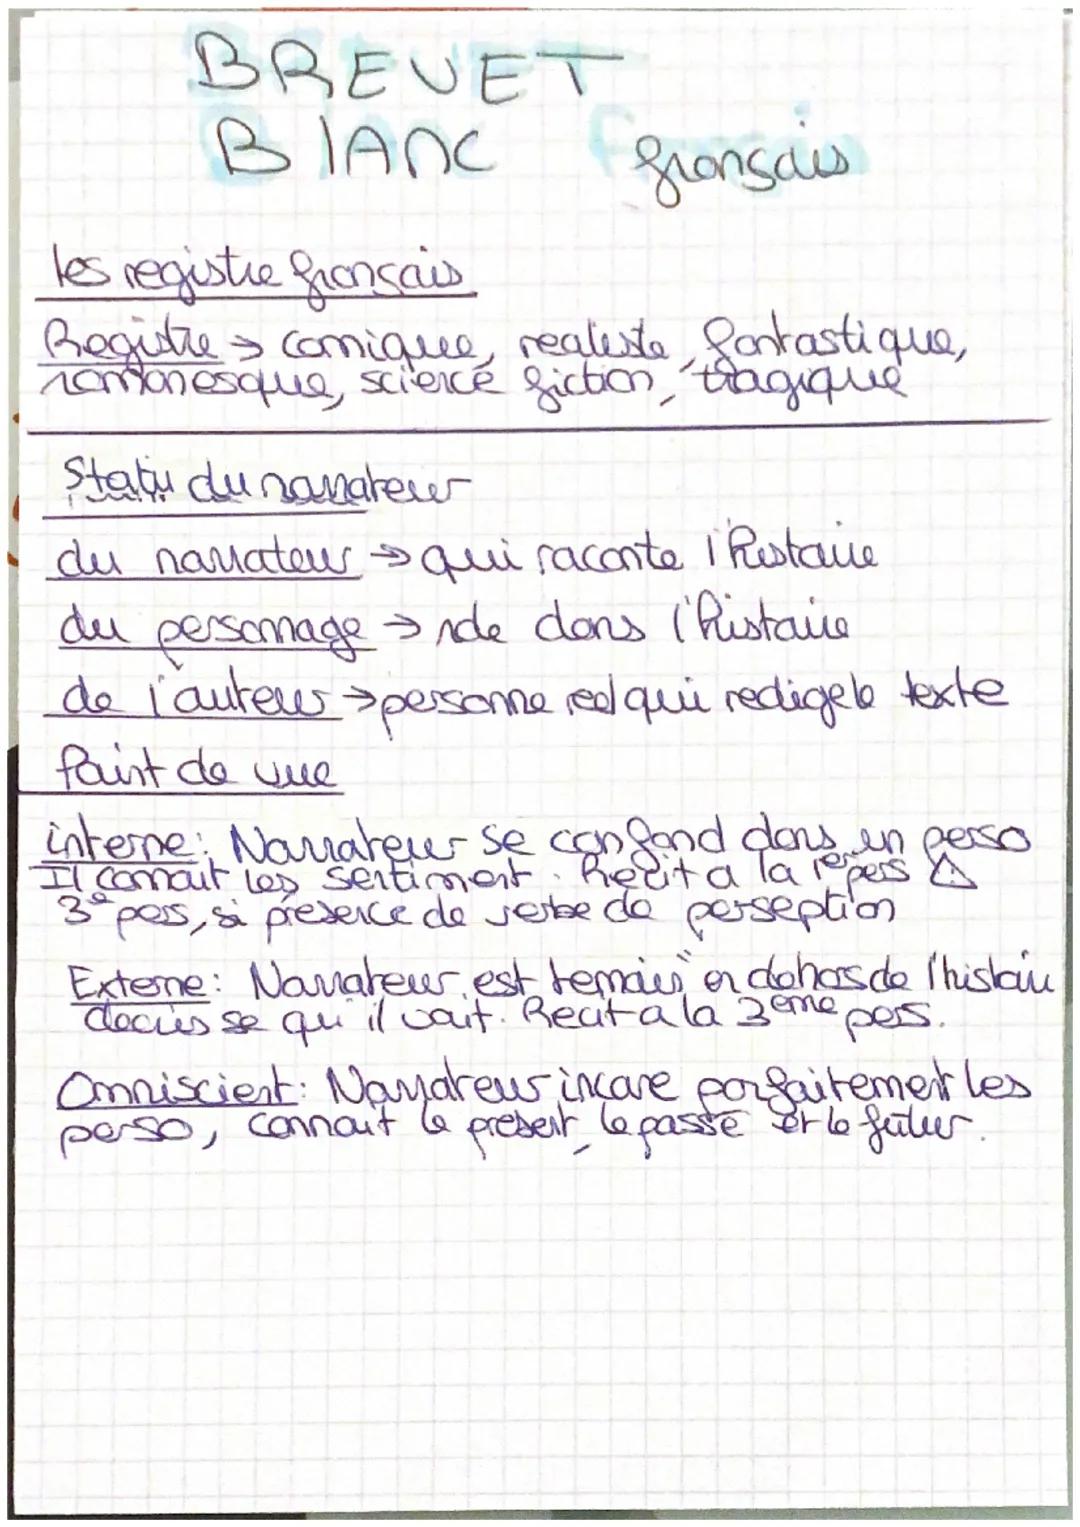 BREVET
BlANC français
les registre français
Registre → comique, realiste, fantastique,
romanesque, science fiction, tragique
Statu du narrateur
du narrateur → qui raconte l'histoire
du personnage → role dans l'histoire
de l'auteur → personne reel qui redige le texte
Point de vue
interne: Narrateur se confond dans un perso
Il connait les sentiment. Recit a la 1ere pers ⚠
3e pers, si présence de verbe de perseption
Externe: Narrateur est temoin en dehors de l'histoire
decris se qu'il voit. Recit a la 3eme pers.
Omniscient: Narrateur incare parfaitement les
perso, connait le présent, le passé et le futur.